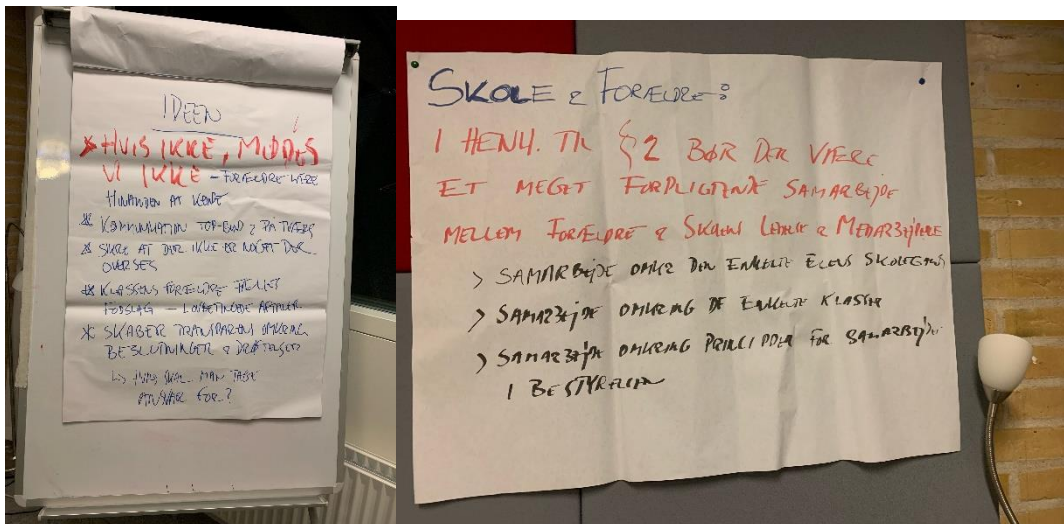 IDEEN
* HVIS IKKE, MØDES
VI IKKE - FORÆLDRE LÆRE
HINANDEN AT KENDE
* KOMMUNIKATION TOP-BUND & PÅ TVÆRS
* SIKRE AT DER IKKE ER NOGET DER
OVERSES
* KLASSENS FORÆLDRE FÆLLES
FODSLAG -
* SKABER TRANSPARENS OMKRING
BESLUTNINGER & DRØFTELSER
MAN TAGE
ANSVAR FOR..?
SKOLE & FORÆLDRE:
I HENH. TIL §2 BØR DER VÆRE
ET MEGET FORPLIGTENDE SAMARBEJDE
MELLEM FORÆLDRE & SKOLENS LEDELSE & MEDARBEJDERE
> SAMARBEJDE OMKR DEN ENKELTE ELEVS SKOLEGANG
> SAMARBEJDE OMKRING DE ENKELTE KLASSER
> SAMARBEJDE OMKRING PRINCIPPER FOR SAMARBEJDE
I BESTYRELSEN